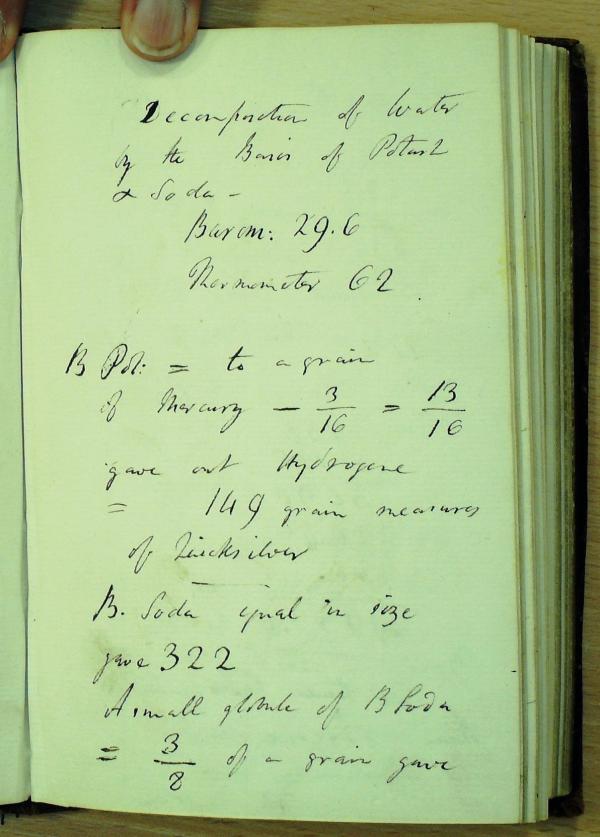 Decomposition of Water
by the Basis of Potash
& Soda -
Barom: 29.6
Thermometer 62
B Pot: = to a grain
of Mercury - 3/16 = 13/16
gave out Hydrogene
= 149 grain measures
of Quicksilver
B. Soda equal in size
gave 322
A small globule of B Soda
= 3/8 of a grain gave